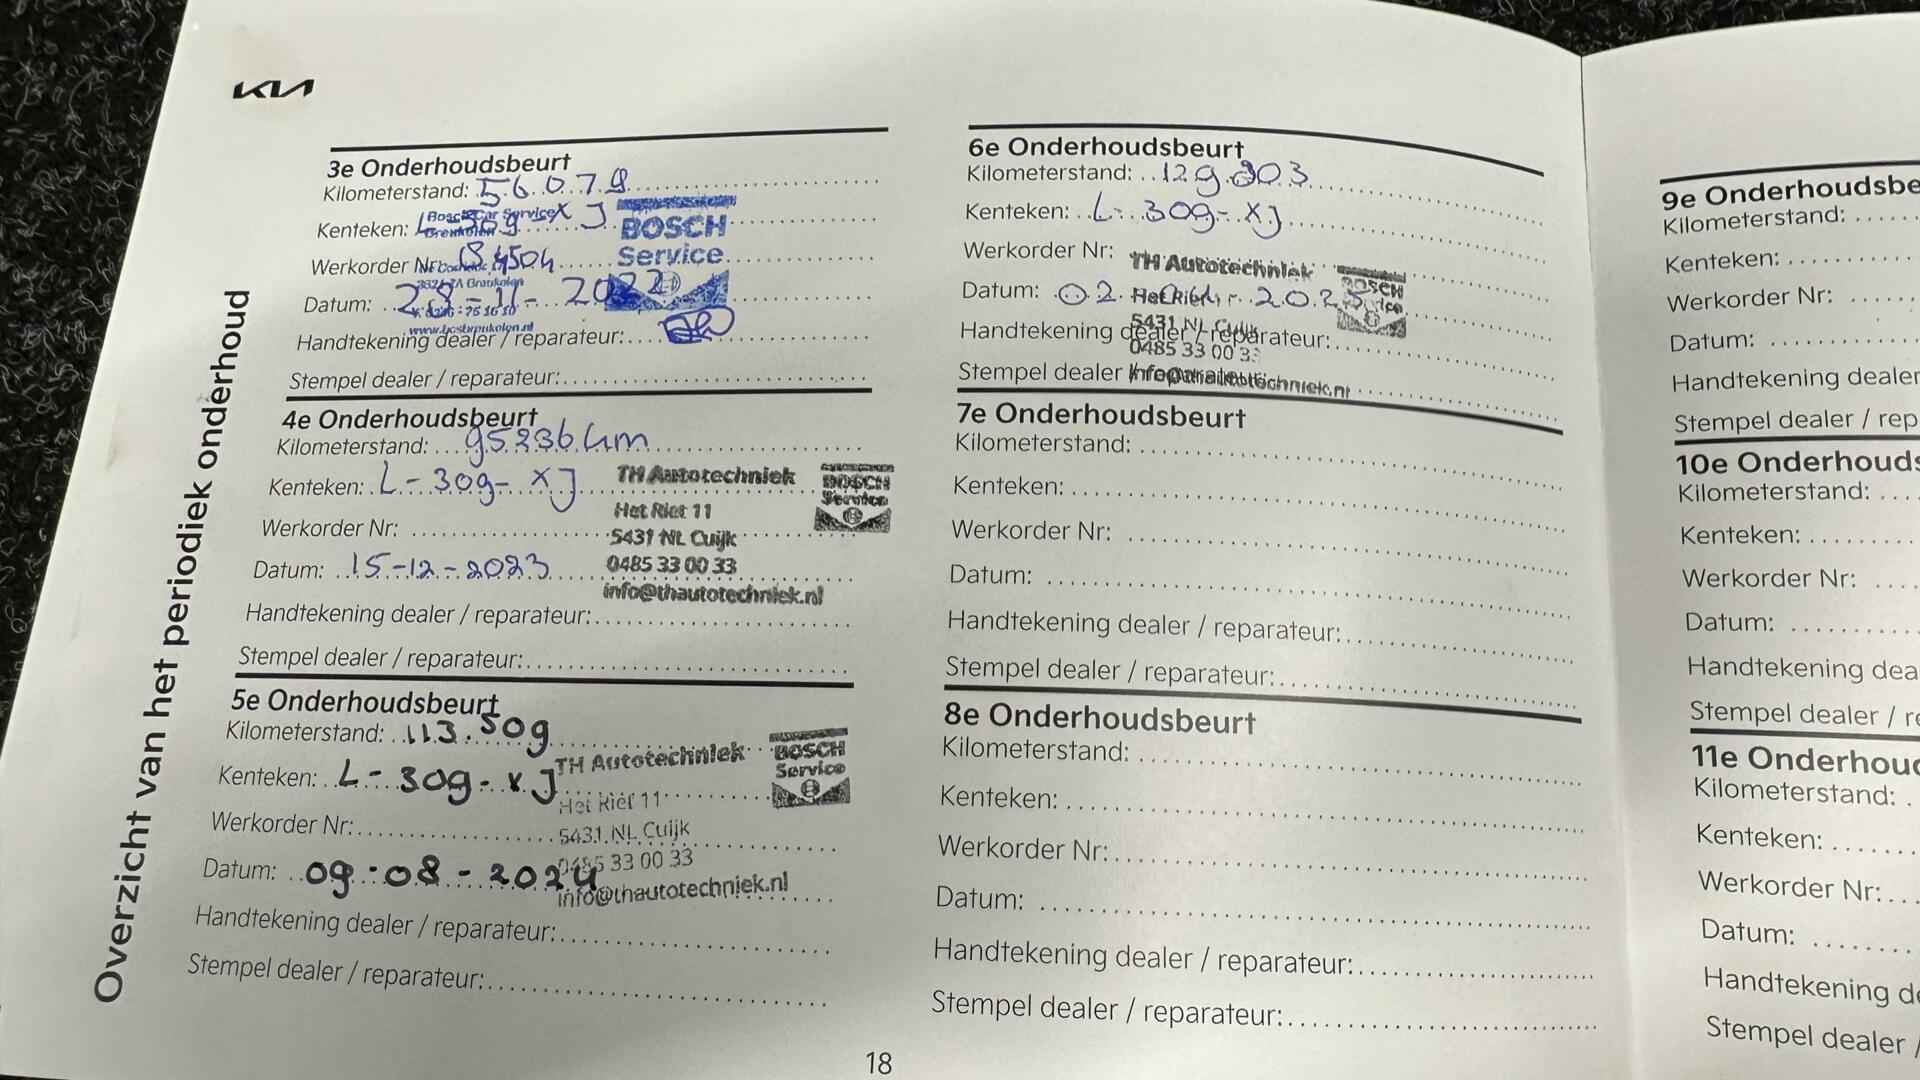 KIA
Overzicht van het periodiek onderhoud
3e Onderhoudsbeurt
Kilometerstand: 56.079
Kenteken: L-309-XJ
Werkorder Nr:
Datum: 28-11-2022
Handtekening dealer / reparateur:
Stempel dealer / reparateur:
Bosch Car Service
Breukelen
www.bcsbreukelen.nl
BOSCH
Service
4e Onderhoudsbeurt
Kilometerstand: 95236 km
Kenteken: L-309-XJ
Werkorder Nr:
Datum: 15-12-2023
Handtekening dealer / reparateur:
Stempel dealer / reparateur:
TH Autotechniek
Het Riet 11
5431 NL Cuijk
0485 33 00 33
info@thautotechniek.nl
BOSCH
Service
5e Onderhoudsbeurt
Kilometerstand: 113.509
Kenteken: L-309-XJ
Werkorder Nr:
Datum: 09-08-2024
Handtekening dealer / reparateur:
Stempel dealer / reparateur:
TH Autotechniek
Het Riet 11
5431 NL Cuijk
0485 33 00 33
info@thautotechniek.nl
BOSCH
Service
6e Onderhoudsbeurt
Kilometerstand: 129.903
Kenteken: L-309-XJ
Werkorder Nr:
Datum: 02 2025
Handtekening dealer / reparateur:
Stempel dealer / reparateur:
TH Autotechniek
Het Riet
5431 NL Cuijk
0485 33 00 33
info@thautotechniek.nl
BOSCH
Service
7e Onderhoudsbeurt
Kilometerstand:
Kenteken:
Werkorder Nr:
Datum:
Handtekening dealer / reparateur:
Stempel dealer / reparateur:
8e Onderhoudsbeurt
Kilometerstand:
Kenteken:
Werkorder Nr:
Datum:
Handtekening dealer / reparateur:
Stempel dealer / reparateur:
18
9e Onderhoudsbe
Kilometerstand:
Kenteken:
Werkorder Nr:
Datum:
Handtekening dealer
Stempel dealer / rep
10e Onderhouds
Kilometerstand:
Kenteken:
Werkorder Nr:
Datum:
Handtekening dea
Stempel dealer / re
11e Onderhoud
Kilometerstand:
Kenteken:
Werkorder Nr:
Datum:
Handtekening de
Stempel dealer /